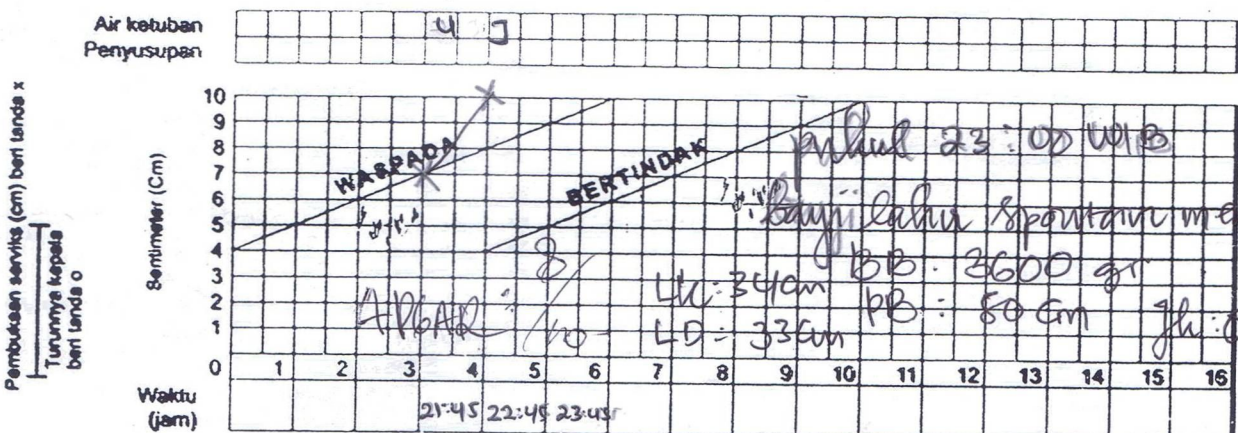 Air ketuban
U J
Penyusupan
Pembukaan serviks (cm) beri tanda x
Turunnya kepala
beri tanda o
Sentimeter (Cm)
10
9
8
7
6
5
4
3
2
1
0
WASPADA
BERTINDAK
pukul 23:00 WIB
bayi lahir spontan me
BB: 3600 gr
PB: 50 cm
jk:
LK: 34 cm
LD: 33 cm
APGAR: 8/10
1 2 3 4 5 6 7 8 9 10 11 12 13 14 15 16
Waktu
(jam)
21:45 22:45 23:45